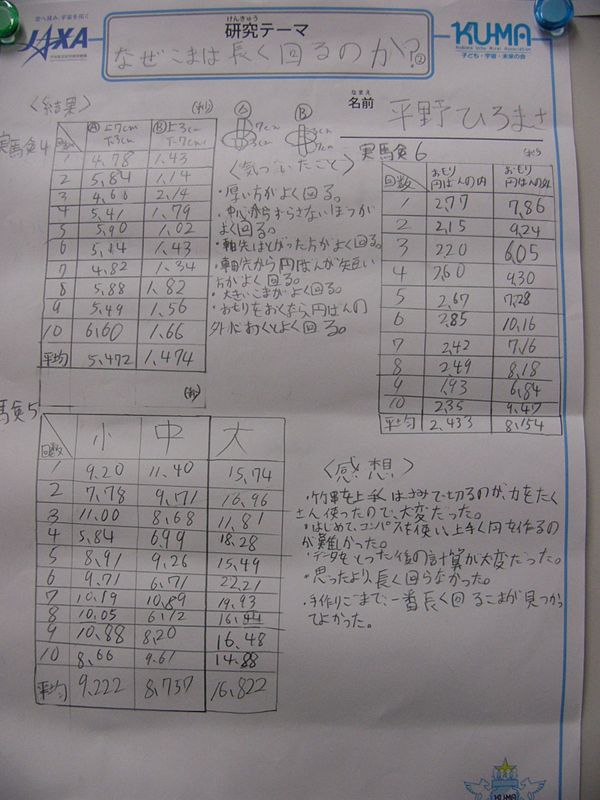 JAXA
けんきゅう
研究テーマ
KUMA
子ども・宇宙・未来の会
なぜこまは長く回るのか?②
なまえ
名前 平野ひろまさ
〈結果〉
(秒)
実馬食4
回数 Ⓐ上7cm 下3cm Ⓑ上3cm 下7cm
1 4.78 1.43
2 5.84 1.14
3 4.66 2.14
4 5.41 1.79
5 5.90 1.02
6 5.14 1.43
7 4.82 1.34
8 5.88 1.82
9 5.49 1.56
10 6.60 1.66
平均 5.472 1.474
Ⓐ 7cm 3cm
Ⓑ 3cm 7cm
〈気づいたこと〉
・厚い方がよく回る。
・中心からずらさないほうが
よく回る。
・軸先はとがった方がよく回る。
・軸先から円ばんが短い
方がよく回る。
・大きいこまがよく回る。
・おもりをおくなら円ばんの
外におくとよく回る。
実馬食6
(秒)
回数 おもり円ばんの内 おもり円ばんの外
1 2.77 7.86
2 2.15 9.24
3 2.20 6.05
4 2.60 9.30
5 2.67 7.28
6 2.85 10.16
7 2.42 7.16
8 2.49 8.18
9 1.93 6.84
10 2.35 9.47
平均 2.433 8.154
(秒)
馬食5
回数 小 中 大
1 9.20 11.40 15.74
2 7.78 9.71 16.96
3 11.00 8.68 11.81
4 5.84 6.99 18.28
5 8.91 9.26 15.49
6 9.71 6.71 22.21
7 10.19 10.89 19.93
8 10.05 6.12 16.44
9 10.88 8.20 16.48
10 8.66 9.61 14.88
平均 9.222 8.757 16.822
〈感想〉
・竹串を上手くはさみで切るのが、力をたく
さん使ったので、大変だった。
・はじめて、コンパスを使い上手く円を作るの
が難しかった。
・データをとった後の計算が大変だった。
・思ったより、長く回らなかった。
・手作りごまで、一番長く回るこまが見つかっ
てよかった。
KUMA